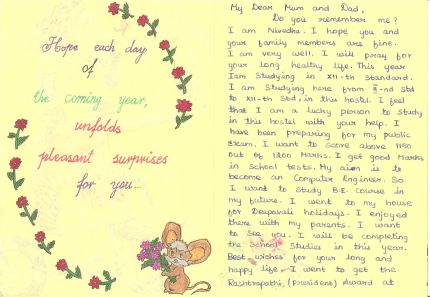 Hope each day
of
the coming year,
unfolds
pleasant surprises
for you...
My Dear Mum and Dad,
Do you remember me?
I am Nivedha. I hope you and
your family members are fine.
I am very well. I will pray for
your long healthy life. This year
Iam Studying in XII-th Standard.
I am Studying here from II-nd Std
to XII-th Std, in this hostel. I feel
that I am a lucky person to study
in this hostel with your help. I
have been preparing for my public
Exam. I want to score above 1150
out of 1200 Marks. I get good Marks
in school tests. My aim is to
become an Computer Engineer. So
I want to study B.E. Course in
my future. I went to my house
for Deepavali holidays. I enjoyed
there with my parents. I want
to See you. I will be completing
the School Studies in this year.
Best wishes for your long and
happy life. I went to get the
Rashtrapathi, (President) Award at